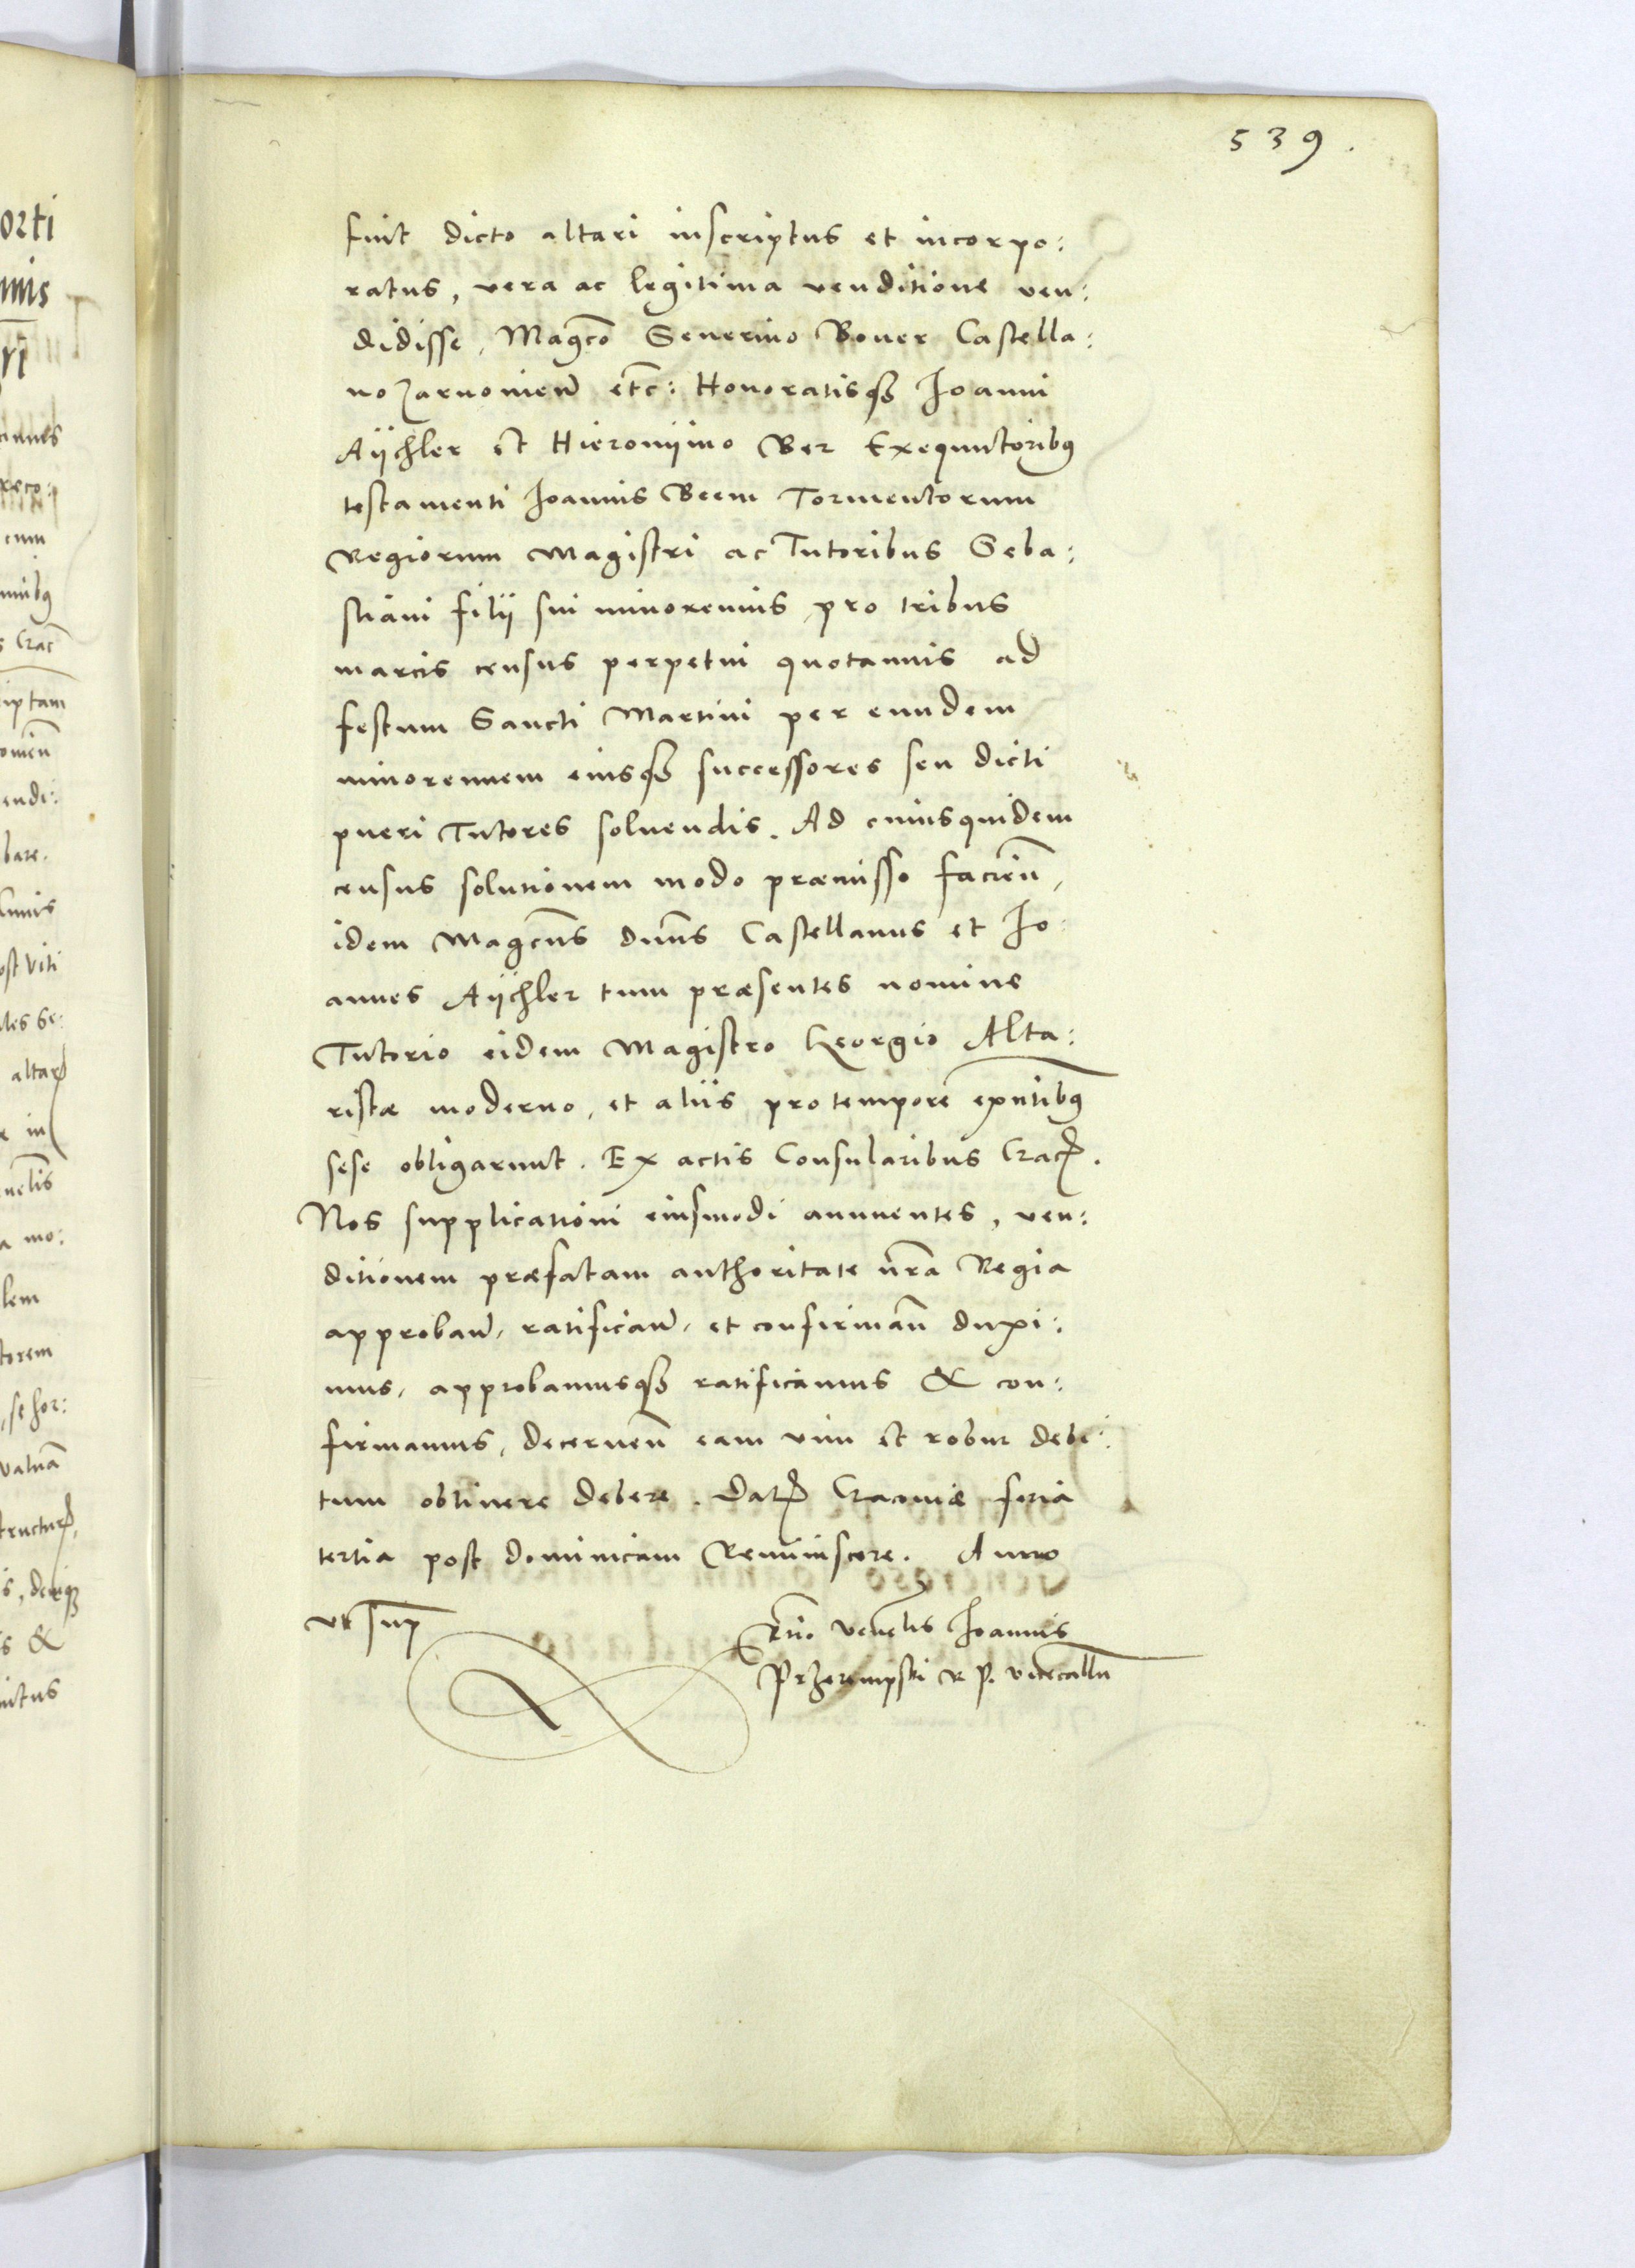 539.
fuit dicto altari inscriptus et incorpo:
ratus, vera ac legitima venditione ven:
didisse, Magco Seuerino Boner Castella:
no Zarnouien etc: Honoratisqȝ Ioanni
Aÿchler et Hieronÿmo Ber Exequutoribꝰ
testamenti Ioannis Beem Tormentorum
Regiorum Magistri ac Tutoribus Seba:
stiani filÿ sui minorennis pro tribus
marcis census perpetui quotannis ad
festum Sancti Martini per eundem
minorennem eiusqȝ successores seu dicti
pueri Tutores soluendis. Ad cuiusquidem
census solutionem modo præmisso facien,
idem Magcus dnus Castellanus et Io:
annes Aÿchler tum præsentes nomine
Tutorio eidem Magistro Georgio Alta:
ristæ moderno, et aliis pro tempore exntibꝰ
sese obligarunt. Ex actis Consularibus Crac.
Nos supplicationi eiusmodi annuentes, ven:
ditionem præfatam authoritate nra Regia
approban, ratifican, et confirman duxi:
mus, approbamusqȝ ratificamus & con:
firmamus, decernen eam vim et robur debi:
tum obtinere debere. Dat Cracouiæ feria
tertia post dominicam Reminiscere. Anno
vt sup
Rrio Venelis Ioannis
Przerempski R P. vicecalln
orti
nnis
ri
reco:
cum
Crac
iptam
endi:
bare.
ost Viti
les se:
altar
e in
a mo:
lem
torem
, se hor:
tructur,
s, deniqȝ
s &